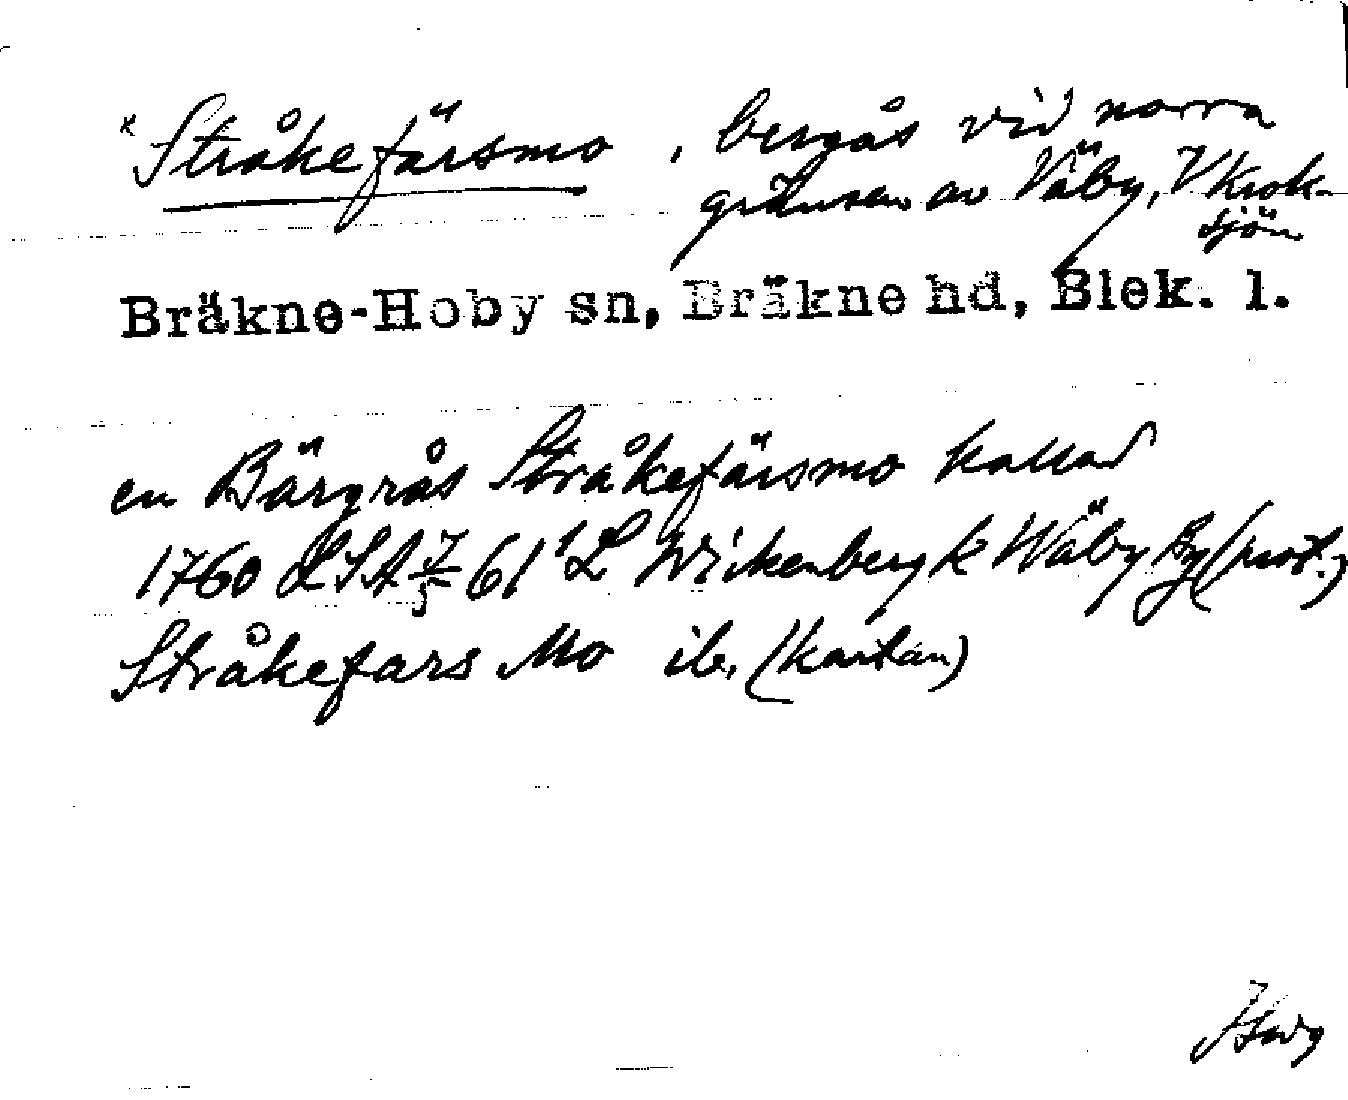 * Stråkefärsmo, bergås vid norra
gränsen av Väby, V Krok-
sjön
Bräkne-Hoby sn, Bräkne hd, Blek. l.
en Bärgrås Stråkefärsmo kallad
1760 LSA 7/5 61¹ L Wikenberg k Wäby By (prot.)
Stråkefars Mo ib. (kartan)